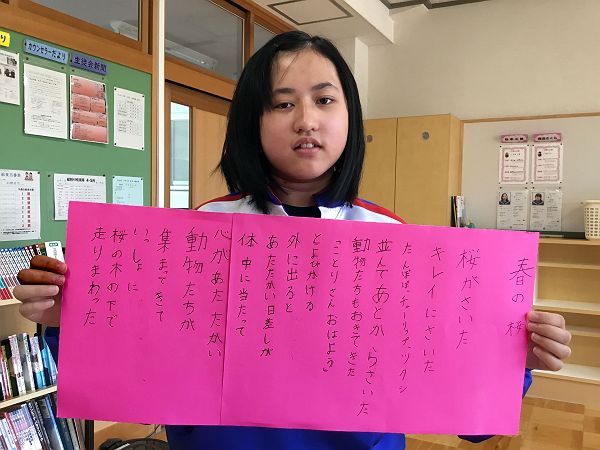 春の桜
桜がさいた
キレイにさいた
たんぽぽ、チューリップ、ツクシ
並んであとからさいた
動物たちもおきてきた
「ことりさんおはよう」
とよびかける
外に出ると
あたたかい日差しが
体中に当たって
心があたたかい
動物たちが
集まってきて
いっしょに
桜の木の下で
走りまわった
カウンセラーだより
生徒会新聞